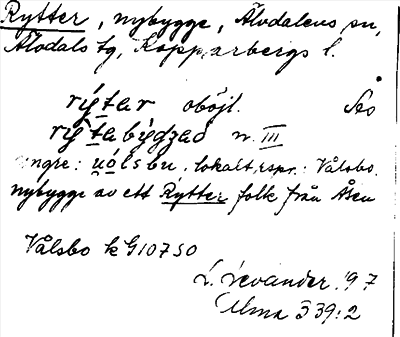 Rytter, nybygge, Älvdalens sn,
Älvdals tg, Kopparbergs l.
rýtar oböjl. Åsen
rýtabýdzad n. III
yngre: uólsbu. lokalt, rspr.: Vålsbo.
nybygge av ett Rytter folk från Åsen
Vålsbo k G10750
L. Levander. '97
Ulma 339:2